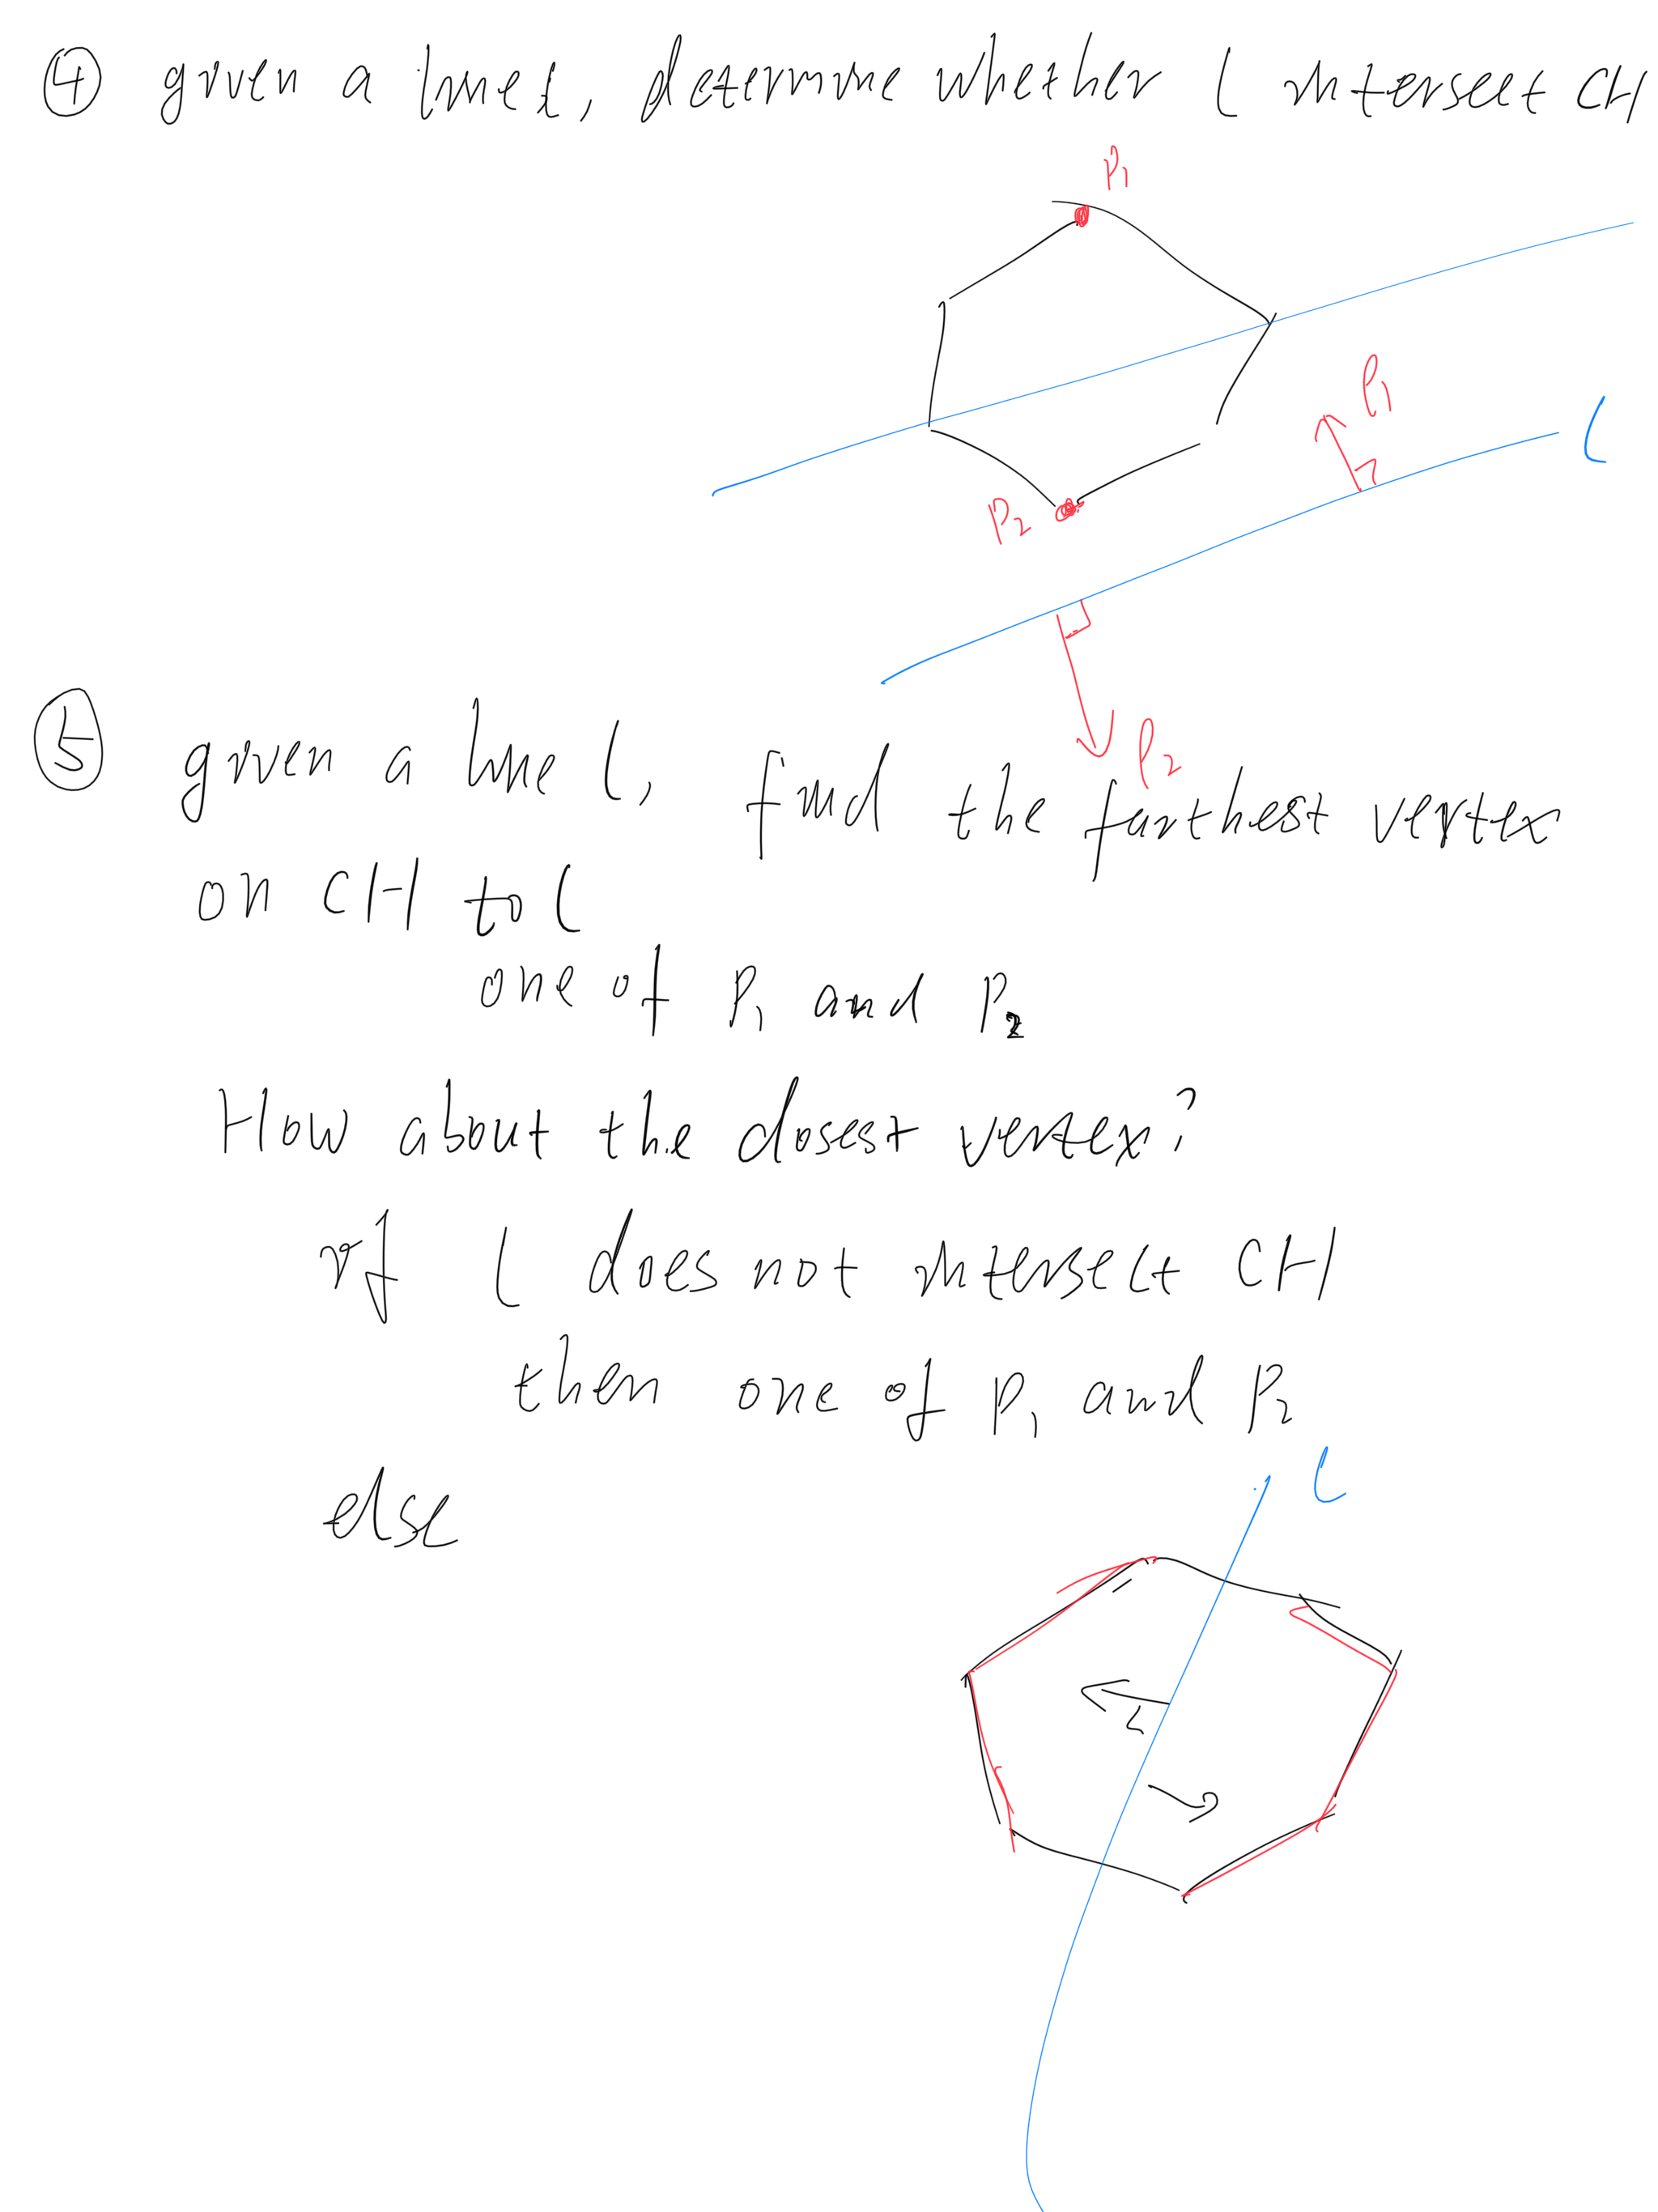 ④ given a line l, determine whether l intersect CH
P1
P1
l
P2
P2
⑤ given a line l, find the furthest vertex
on CH to l
one of P1 and P2
How about the closest vertex?
if l does not intersect CH
then one of P1 and P2
else
l